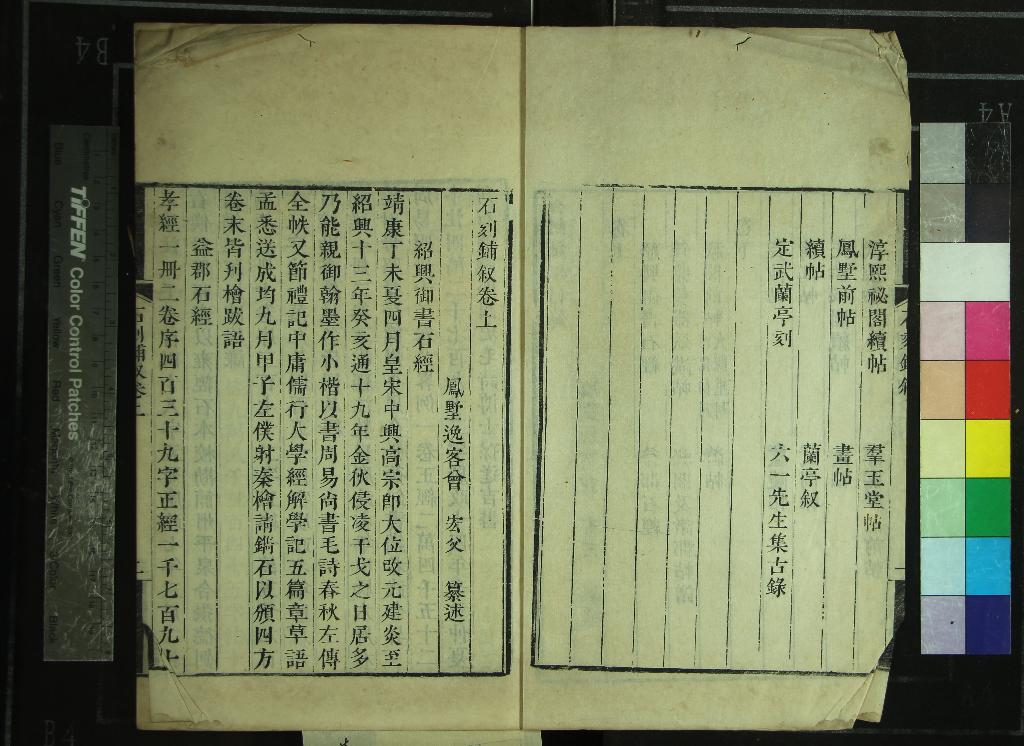 淳熙祕閣續帖　羣玉堂帖
鳳墅前帖　畫帖
續帖　蘭亭叙
定武蘭亭刻　六一先生集古錄
石刻鋪叙卷上
鳳墅逸客曾　宏父　纂述
紹興御書石經
靖康丁未夏四月皇宋中興高宗卽大位改元建炎至
紹興十三年癸亥通十九年金狄侵凌干戈之日居多
乃能親御翰墨作小楷以書周易尚書毛詩春秋左傳
全帙又節禮記中庸儒行大學經解學記五篇章草語
孟悉送成均九月甲子左僕射秦檜請鐫石以頒四方
卷末皆刋檜跋語
益郡石經
孝經一冊二卷序四百三十九字正經一千七百九十
石刻鋪叙卷上
TIFFEN Color Control Patches
Blue
Cyan
Green
Yellow
Red
Magenta
White
Black
B4
A4
B4